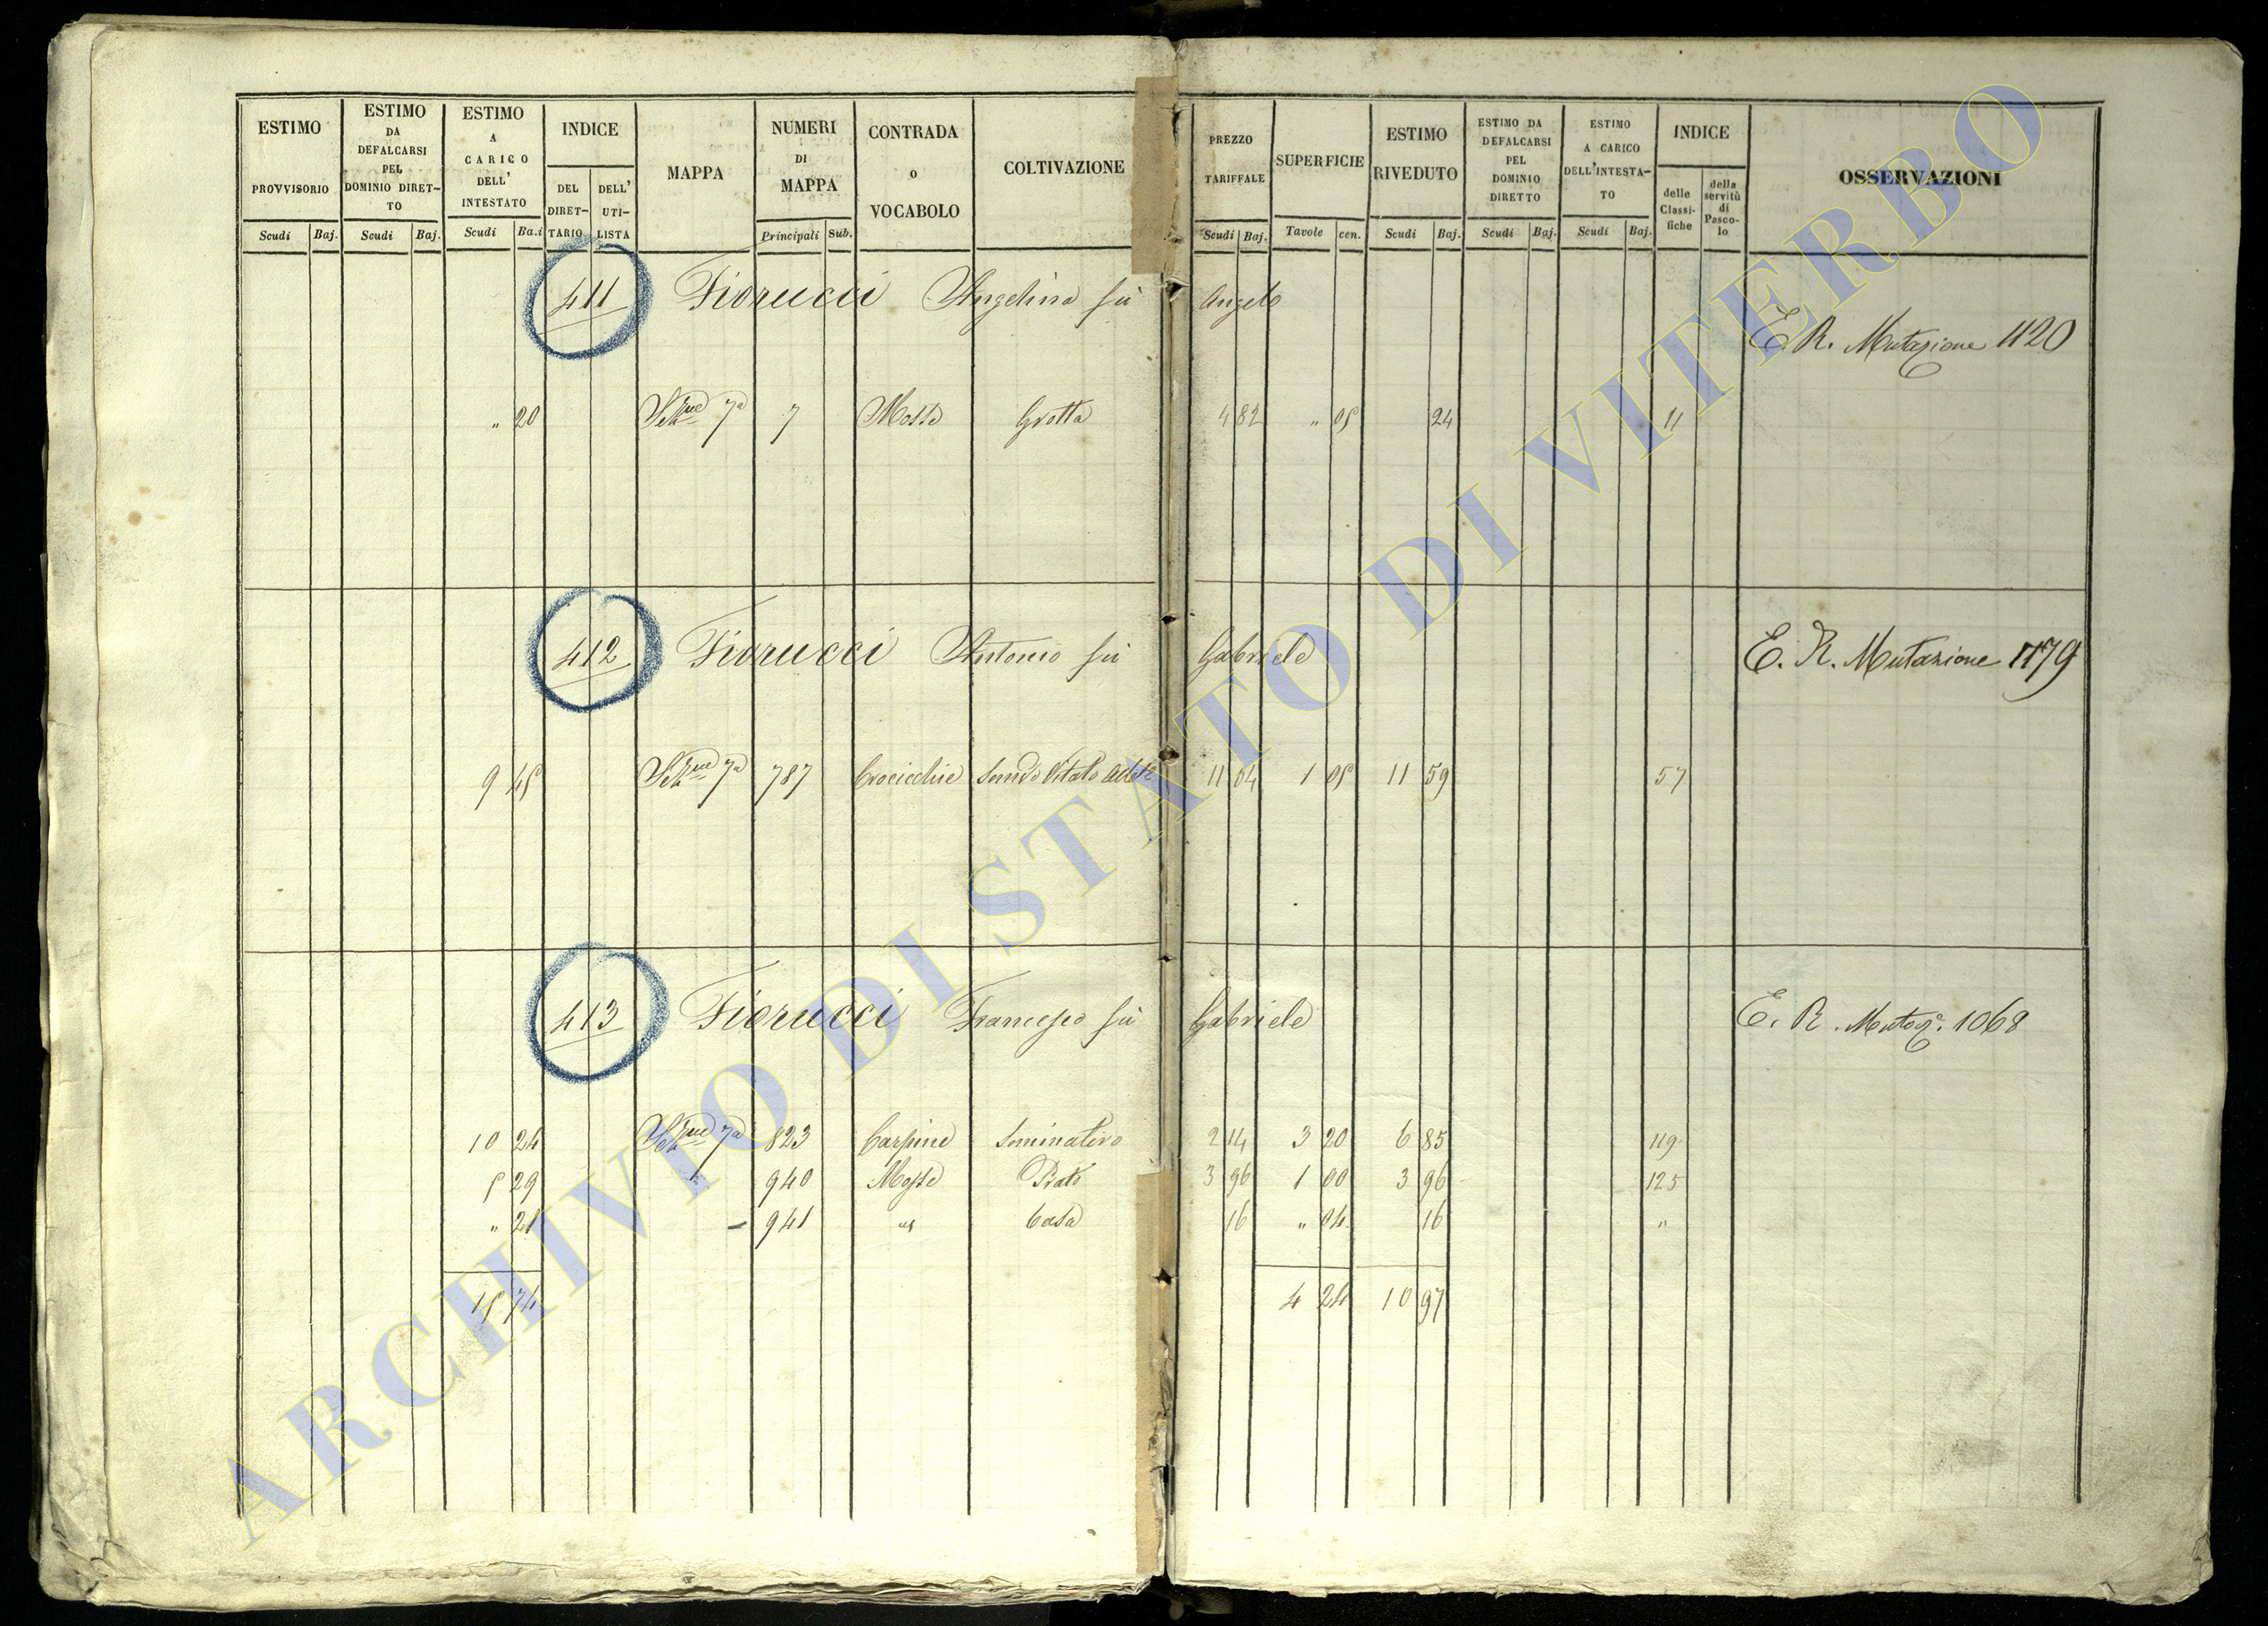 ESTIMO PROVVISORIO Scudi Baj.
ESTIMO DA DEFALCARSI PEL DOMINIO DIRET-TO Scudi Baj.
ESTIMO A CARICO DELL' INTESTATO Scudi Ba.i
INDICE DEL DIRET-TARIO DELL' UTI-LISTA
MAPPA
NUMERI DI MAPPA Principali Sub.
CONTRADA O VOCABOLO
COLTIVAZIONE
PREZZO TARIFFALE Scudi Baj.
SUPERFICIE Tavole cen.
ESTIMO RIVEDUTO Scudi Baj.
ESTIMO DA DEFALCARSI PEL DOMINIO DIRETTO Scudi Baj.
ESTIMO A CARICO DELL'INTESTA-TO Scudi Baj.
INDICE delle Classi-fiche della servitù di Pasco-lo
OSSERVAZIONI
411 Fiorucci Angelina fù Angelo
E. R. Mutazione 1120
" 20 7a 7 Grotta 4 82 " 05 24 11
412 Fiorucci Antonio fù Gabriele
E. R. Mutazione 1179
9 45 7a 787 Crocicchie 11 04 1 05 11 59 57
413 Fiorucci Francesco fù Gabriele
E. R. 1068
10 24 7a 823 Carpine Seminativo 2 14 3 20 6 85 119
5 29 " 940 Prato 3 96 1 00 3 96 125
" 21 – 941 Casa 16 " 04 16 "
15 74 4 24 10 97
ARCHIVIO DI STATO DI VITERBO